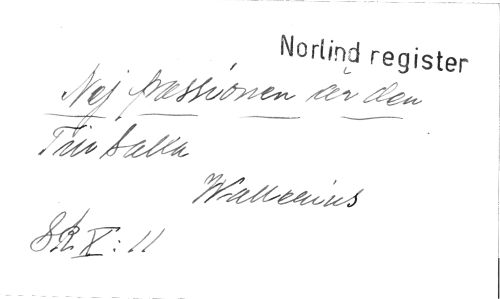 Norlind register
Nej passionen är den
Trio balla
Wallenius
SR X: 11